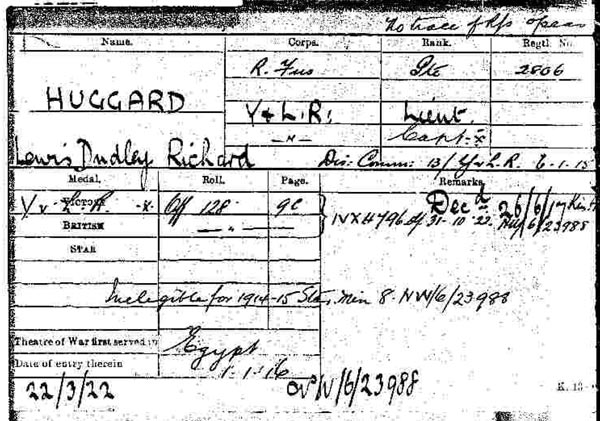 No trace of
Name. Corps. Rank. Regtl. No.
R. Fus Pte 2806
HUGGARD
Y & L. R. Lieut.
—"— Capt. x
Lewis Dudley Richard Dis: Comm: 13/Y&L.R. 6-1-15
Medal. Roll. Page. Remarks.
VICTORY Off 128 9C Dec d 26/6/17
BRITISH — " — IVX4796 of 31-10-22. NW/6/23988
STAR
Ineligible for 1914-15 Star Min 8. NW/6/23988
Theatre of War first served in Egypt
Date of entry therein 1-1-16
22/3/22 NW/6/23988
K. 13